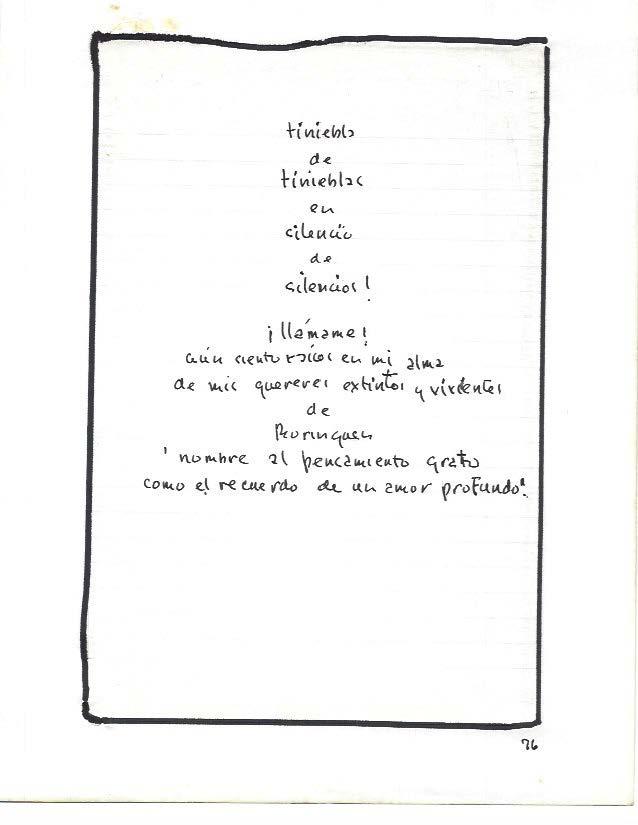 tiniebla
de
tinieblas
en
silencio
de
silencios!
¡llámame!
aún siento raíces en mi alma
de mis quereres extintos y vivientes
de
Borinquen
"nombre al pensamiento grato
como el recuerdo de un amor profundo".
76